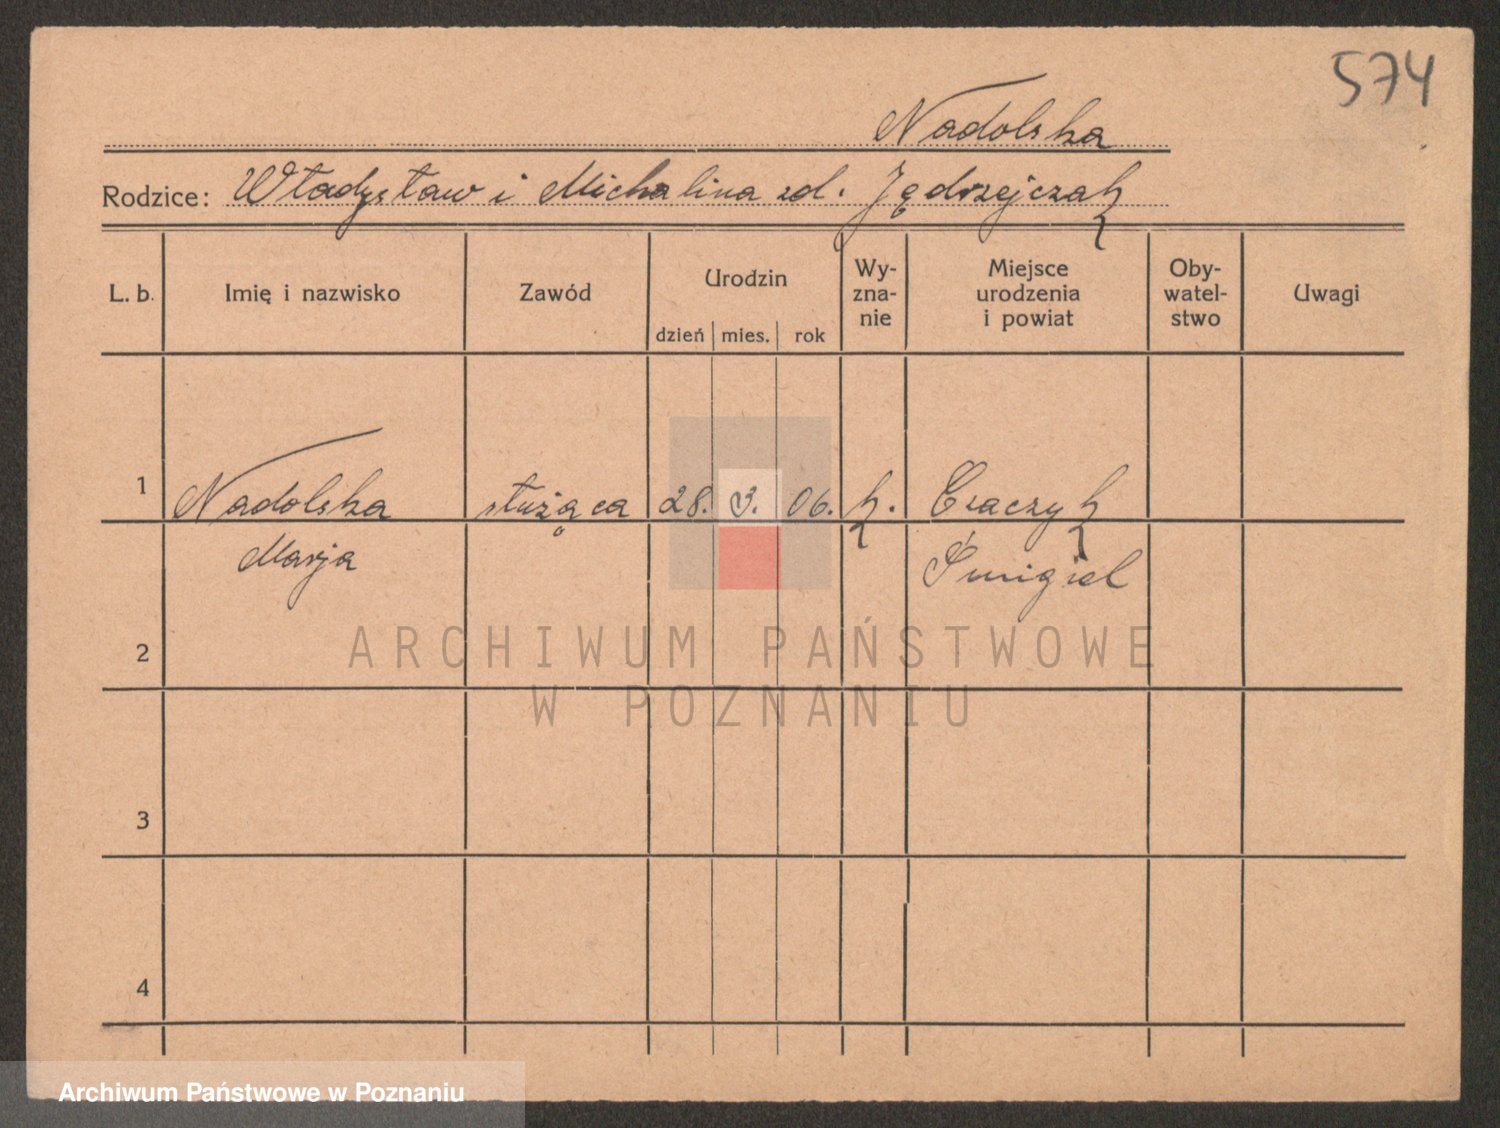 574
Nadolska
Rodzice: Władysław i Michalina zd. Jędrzejczak
L. b. Imię i nazwisko Zawód Urodzin dzień mies. rok Wy-zna-nie Miejsce urodzenia i powiat Oby-watel-stwo Uwagi
1 Nadolska służąca 28. 3. 06. k. Czaczyk
Marja Śmigiel
2
ARCHIWUM PAŃSTWOWE
W POZNANIU
3
4
Archiwum Państwowe w Poznaniu